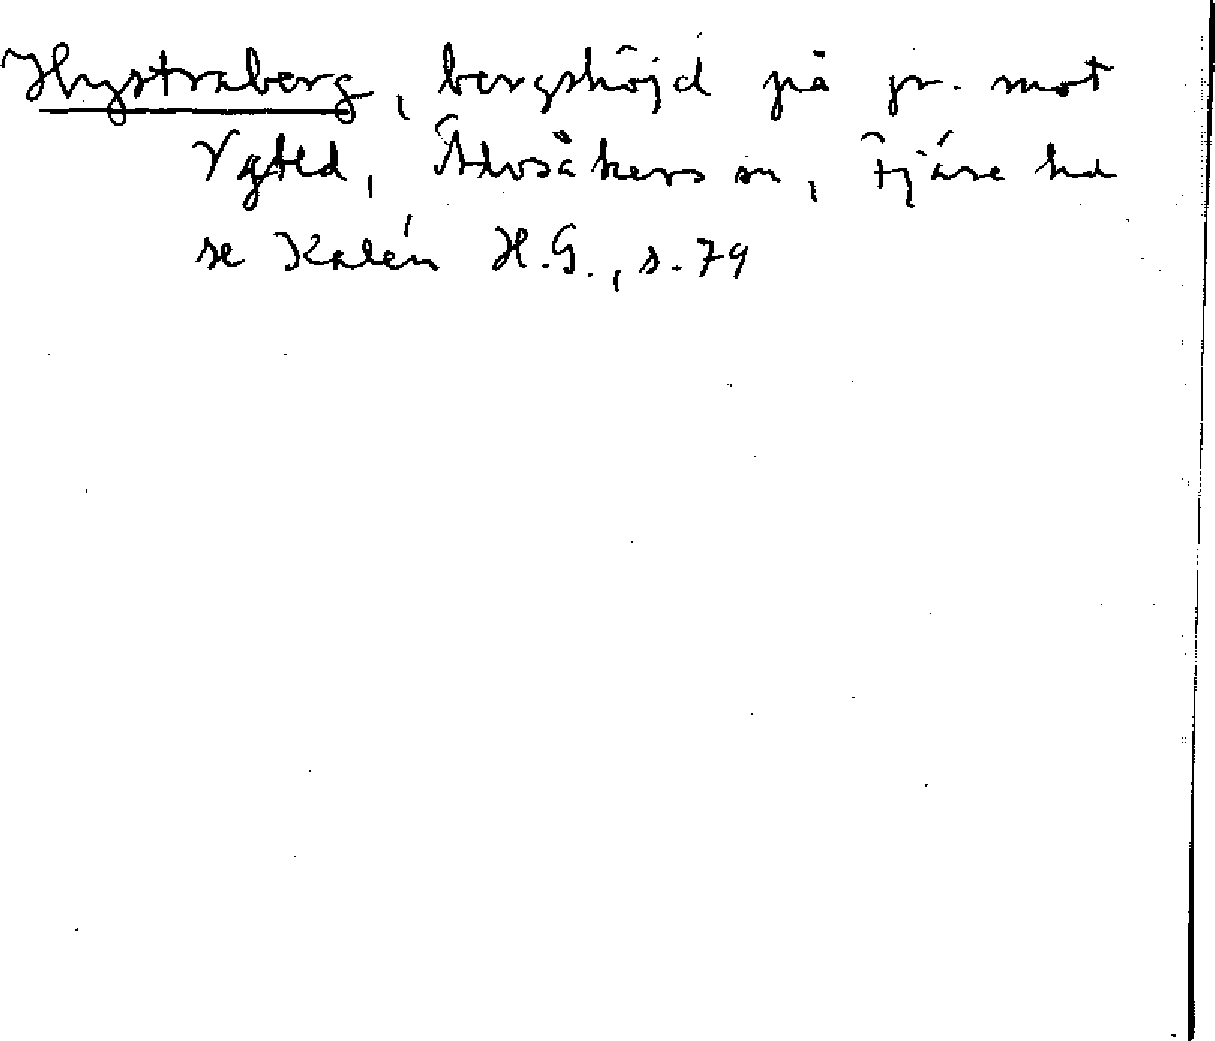 Hystraberg, bergshöjd på gr. mot
Vgtld, Älvsåkers sn, Fjäre hd
se Kalén H.G., s. 79